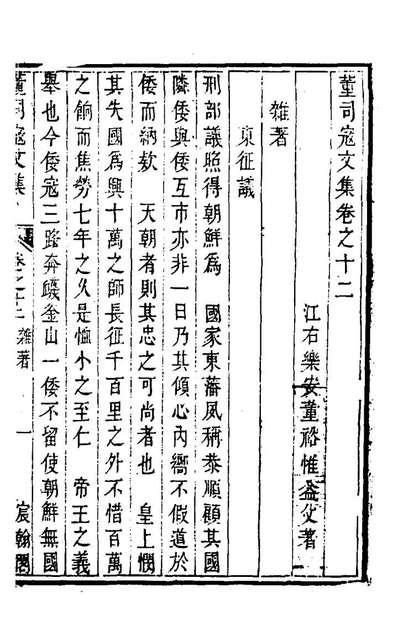 董司寇文集卷之十二
江右樂安董裕惟益父著
雜著
東征議
刑部議照得朝鮮為　國家東藩夙稱恭順顧其國
隣倭與倭互市亦非一日乃其傾心內嚮不假道於
倭而納欵　天朝者則其忠之可尚者也　皇上憫
其失國為興十萬之師長征千百里之外不惜百萬
之餉而焦勞七年之久是恤小之至仁　帝王之義
舉也今倭寇三路奔竄釜山一倭不留使朝鮮無國
董司寇文集　卷之十二　雜著　一　宸翰閣